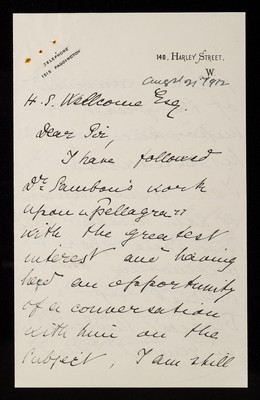 TELEPHONE
1515 PADDINGTON
140, HARLEY STREET,
W
August 21st 1912
H. S. Wellcome Esq.
Dear Sir,
I have followed
Dr Sambon's work
upon "Pellagra"
with the greatest
interest and having
had an opportunity
of a conversation
with him on the
subject, I am still